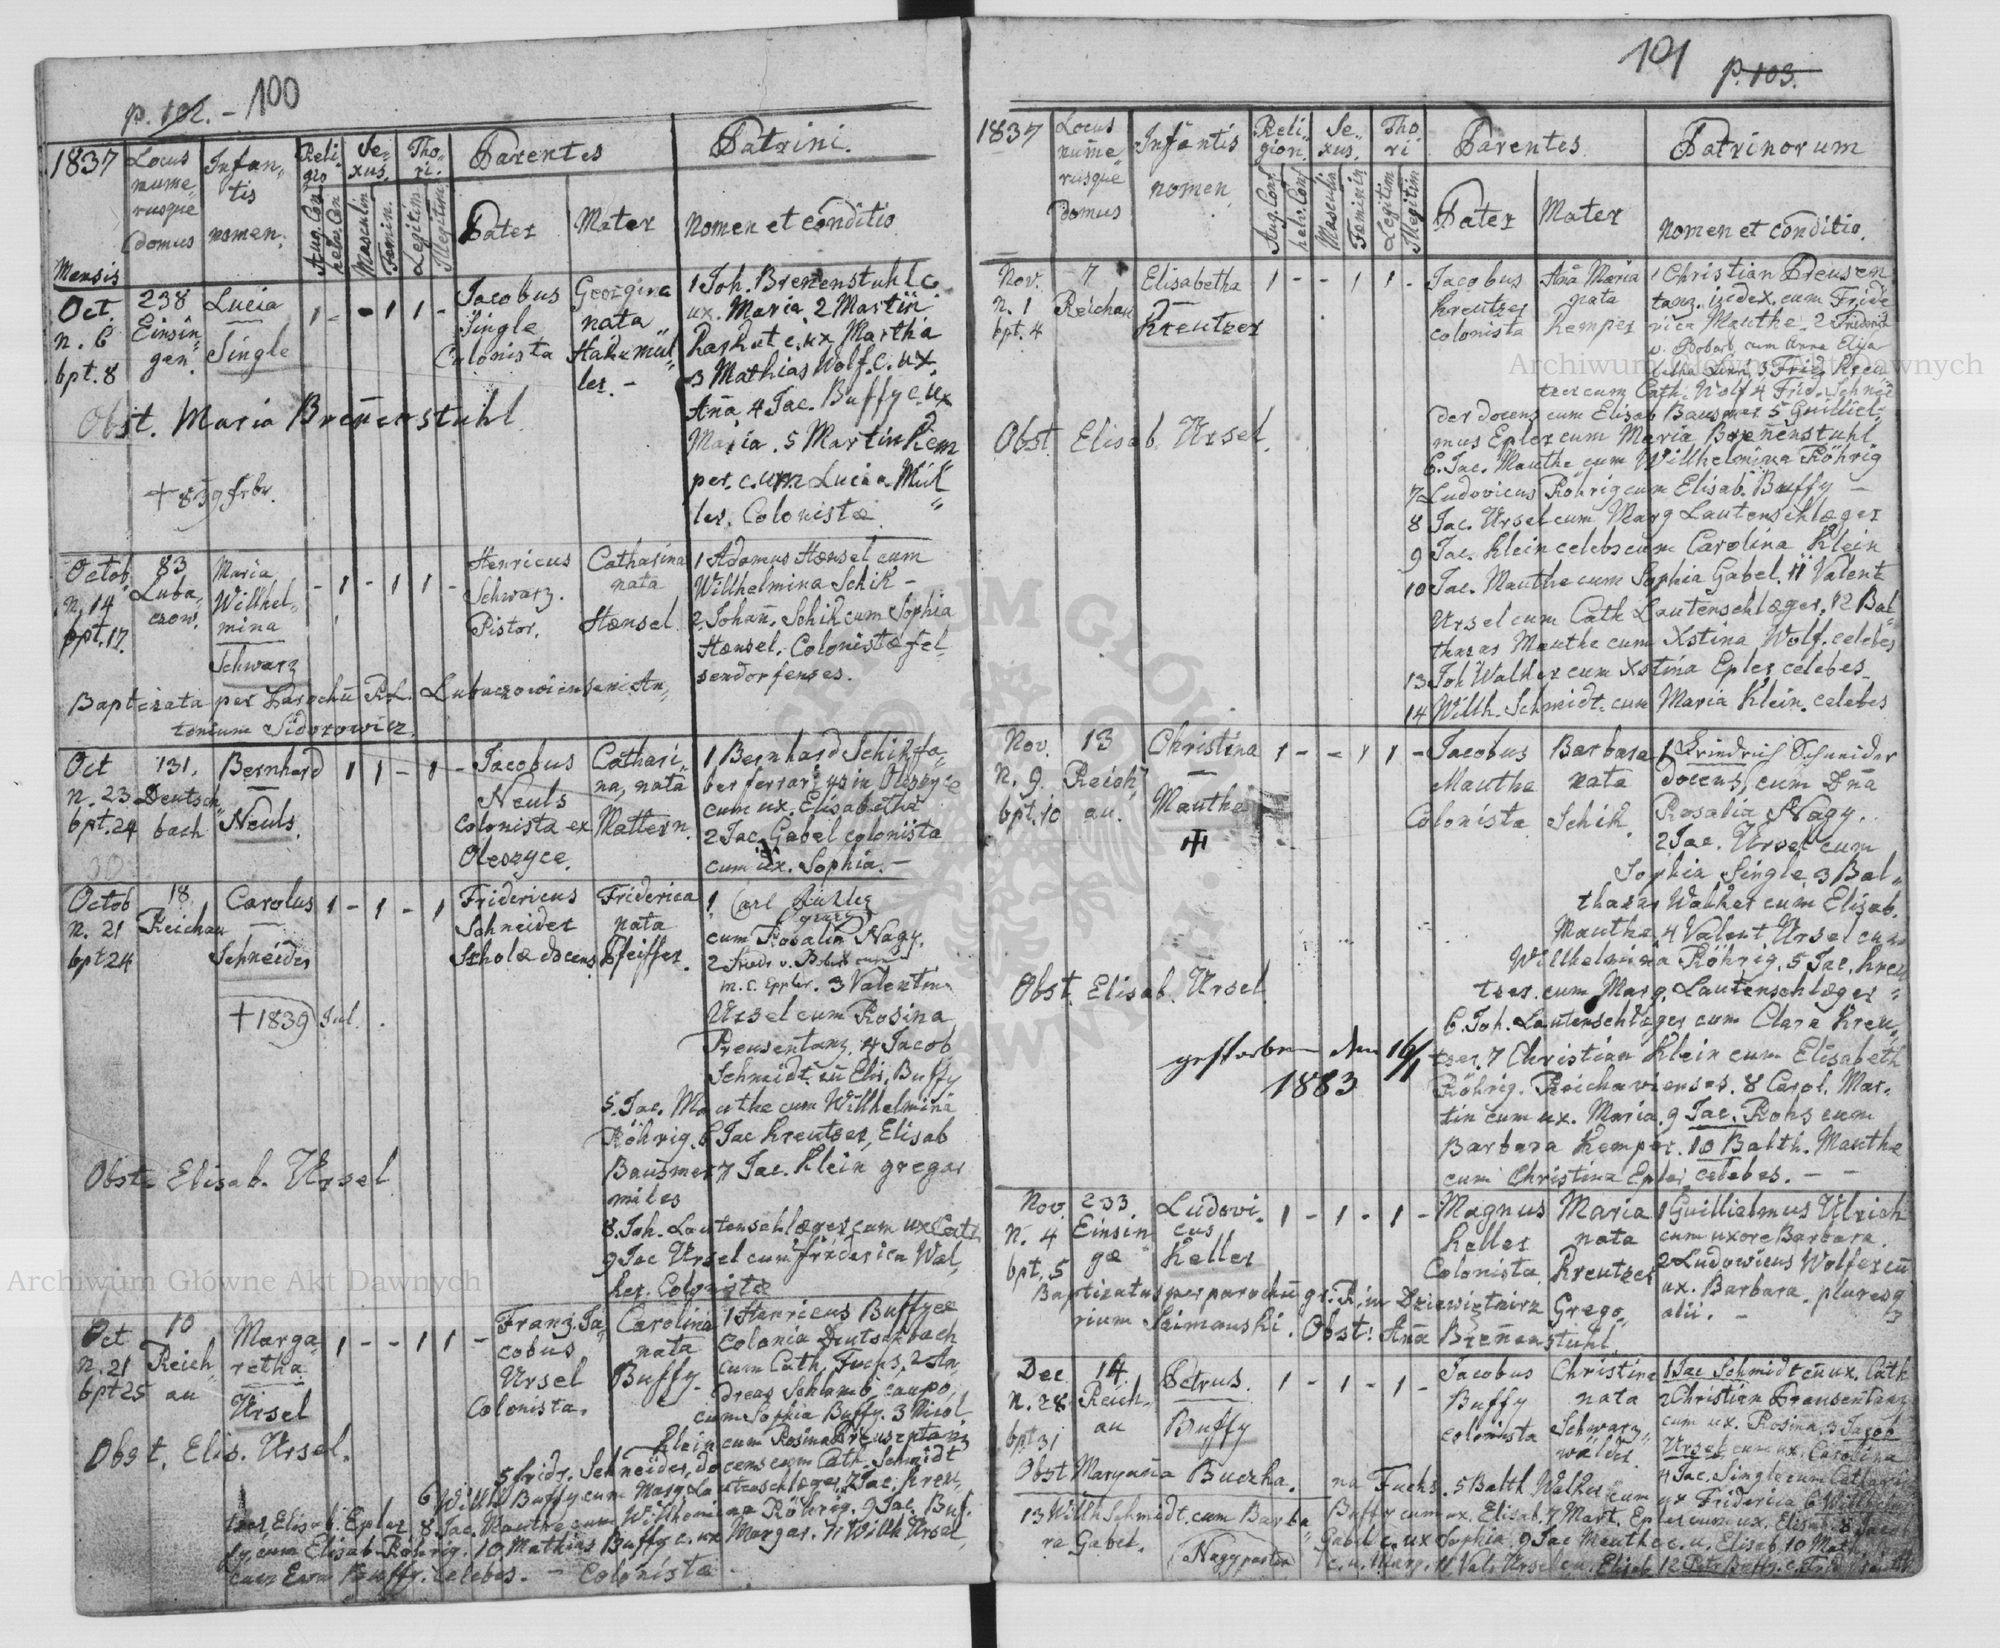 p. 102. - 100
1837
Locus numerusque domus
Infantis nomen.
Religio
Sexus.
Thori.
Parentes
Patrini.
Aug. Con
helv. Con
Masculin
Famin.
Legitim
Illegitim
Pater
Mater
Nomen et conditio
Mensis
Oct.
n. 6
bpt. 8
238
Einsin„
gen.
Lucia
Single
1 - - 1 1 -
Jacobus
Single
Colonista
Georgina
nata
ler. -
1 Joh. Brenenstuhl c.
ux. Maria, 2 Martin
c. ux Martha
3 Mathias Wolf. c. ux.
Ana 4 Jac. Buffy c. ux
Maria. 5 Martin Kem
per. c. Lucia
ler. Colonistæ.
Obst. Maria Brenenstuhl.
+ 839 febr.
Octob.
n. 14
bpt. 17.
83
Luba„
czow.
Maria
Willhel„
mina
Schwarz
- 1 - 1 1 -
Henricus
Schwarz.
Pistor.
Catharina
nata
Hænsel.
1 Adamus Hænsel cum
Willhelmina Schik -
2. Johan. Schik cum Sophia
Hænsel. Colonistæ fel„
sendorfenses.
Baptizata per Parochu R.L. Lubaczowiensem An„
tonium Sidorowicz.
Oct
n. 23
bpt. 24
131.
Deutsch„
bach
Bernhard
Neuls.
1 1 - 1 -
Jacobus
Neuls
colonista ex
Oleszyce.
Cathari„
na, nata
Mattern.
1 Bernhard Schik fa„
ber ferrari in Oleszyce
cum ux. Elisabetha
2 Jac. Gabel colonista
cum ux. Sophia. -
Octob
n. 21
bpt 24
18.
Reichau
Carolus
Schneider
1 - 1 - 1
Fridericus
Schneider
Scholæ docens
Friderica
nata
Pfeiffer.
1 Carl
cum Rosalia Nagy.
M. C. Eppler. 3 Valentin
Ursel cum Rosina
Preusentanz. 4 Jacob
Schmidt cu Elis. Buffy
5. Jac. Mauthe cum Willhelmina
Röhrig. 6 Jac Kreutzer, Elisab
Bausmer 7 Jac. Klein gregar
miles
8. Joh. Lautenschlæger cum ux Cath
9 Jac Ursel cum friderica Wal„
ker. Colonistæ
+ 1839 Jul.
Obst. Elisab. Ursel
Oct
n. 21
bpt 25
10
Reich„
au
Marga„
retha.
Ursel
1 - - 1 1 -
Franz. Ja„
cobus
Ursel
Colonista.
Carolina
nata
Buffy
1 Henricus Buffy ex
Colonia Deutschbach
cum Cath. Fuchs. 2 An„
dreas Schlamb, caupo,
cum Sophia Buffy. 3 Nicol.
Klein cum Rosina Preusentanz
5 fridr. Schneider, docens cum Cath. Schmidt
Obst. Elis. Ursel.
6 Willh Buffy cum Marg Lautenschlæger, 7 Jac. Kreu„
tzer, Elisab. Epler, 8 Jac. Mauthe cum Wilhelmina Röhrig. 9 Jac. Buf„
fy cum Elisab Röhrig. 10 Mathias Buffy c. ux Margar. 11 Willh Ursel,
cum Eva Buffy. Celebes. - Colonistæ.
101 p. 103.
1837
Locus numerusque domus
Infantis nomen
Religion.
Sexus.
Thori
Parentes
Patrinorum
Aug. Conf
helv. Conf
Masculin
Fæminin
Legitim
Illegitim
Pater
Mater
Nomen et conditio.
Nov.
n. 1
bpt. 4
7
Reichau
Elisabetha
Kreutzer
1 - - 1 1 -
Jacobus
Kreutzer
colonista
Ana Maria
nata
Kemper
1 Christian Preusen
tanz, iudex. cum Fride
rica Mauthe. 2 Friderich
v. Bobart cum Anna Elisa
betha Linn, 3 Frid. Kreu
tzer cum Cath. Wolf 4 Frid. Schnei
der docens cum Elisab Bausmer. 5 Guiliel„
mus Epler cum Maria Brenenstuhl
6. Jac. Mauthe cum Willhelmina Röhrig
7 Ludovicus Röhrig cum Elisab. Buffy -
8 Jac. Ursel cum Marg Lautenschlæger
9 Jac. Klein celebs cum Carolina Klein
10 Jac. Mauthe cum Sophia Gabel. 11 Valent
Ursel cum Cath Lautenschlæger. 12 Bal„
thasar Mauthe cum Xstina Wolf. celebes
13 Joh Walker cum Xstina Epler celebes
14 Willh. Schmidt. cum Maria Klein. celebes
Obst. Elisab. Ursel.
Nov.
n. 9.
bpt. 10
13
Reich„
au.
Christina
Mauthe
1 - - 1 1 -
Jacobus
Mauthe
Colonista
Barbara
nata
Schik.
1 Friedrich Schneider
docens, cum Dna
Rosalia Nagy.
2 Jac. Ursel cum
Sophia Single. 3 Bal„
thasar Walker cum Elisab.
Mauthe, 4 Valent. Ursel cum
Willhelmina Röhrig. 5 Jac. Kreu
tzer. cum Marg. Lautenschlæger„
6. Joh. Lautenschläger cum Clara Kreu„
tzer. 7 Christian Klein cum Elisabeth
Röhrig. Reichavienses. 8 Carol. Mar„
tin cum ux. Maria. 9 Jac. Rohs cum
Barbara Kemper. 10 Balth. Mauthe
cum Christina Epler celebes. - -
Obst. Elisab. Ursel
gestorben den 16/1
1883
Nov.
n. 4
bpt. 5
233.
Einsin
gæ
Ludovi„
cus
Keller
1 - 1 - 1 -
Magnus
Keller
Colonista
Maria
nata
Kreutzer
1 Guillielmus Ulrich
cum uxore Barbara.
2 Ludovicus Wolfer cu
ux. Barbara. plures q
alii. -
Baptizatus per parochu gr. R. in Dziewięcierz Grego„
rium Szimanski. Obst: Ana Brenenstuhl.
Dec.
n. 28
bpt 31
14.
Reich„
au
Petrus.
Buffy
1 - 1 - 1 -
Jacobus
Buffy
colonista
Christina
nata
Schwarz„
wälder.
1 Jac Schmidt cu ux. Cath
2 Christian Preusentanz
cum ux. Rosina. 3 Jacob
Ursel cum ux. Carolina
4 Jac. Single cum Cathari
na Fuchs. 5 Balth Walker cum ux Friderica 6 Willhelm
Obst Maryana Buczka.
Buffy cum ux. Elisab. 7 Mart. Epler cum ux. Elisab. 8 Jacob
Gabel c. ux Sophia. 9 Jac Mauthe c. u. Elisab. 10 Math
c. u. Marg. 11 Val. Ursel c. u. Elisab. 12 Petr Buffy. c. Frid.
13 Willh Schmidt. cum Barba
ra Gabel.
Nagy pastor
Archiwum Główne Akt Dawnych
Archiwum Główne Akt Dawnych
ARCHIWUM GŁÓWNE AKT DAWNYCH